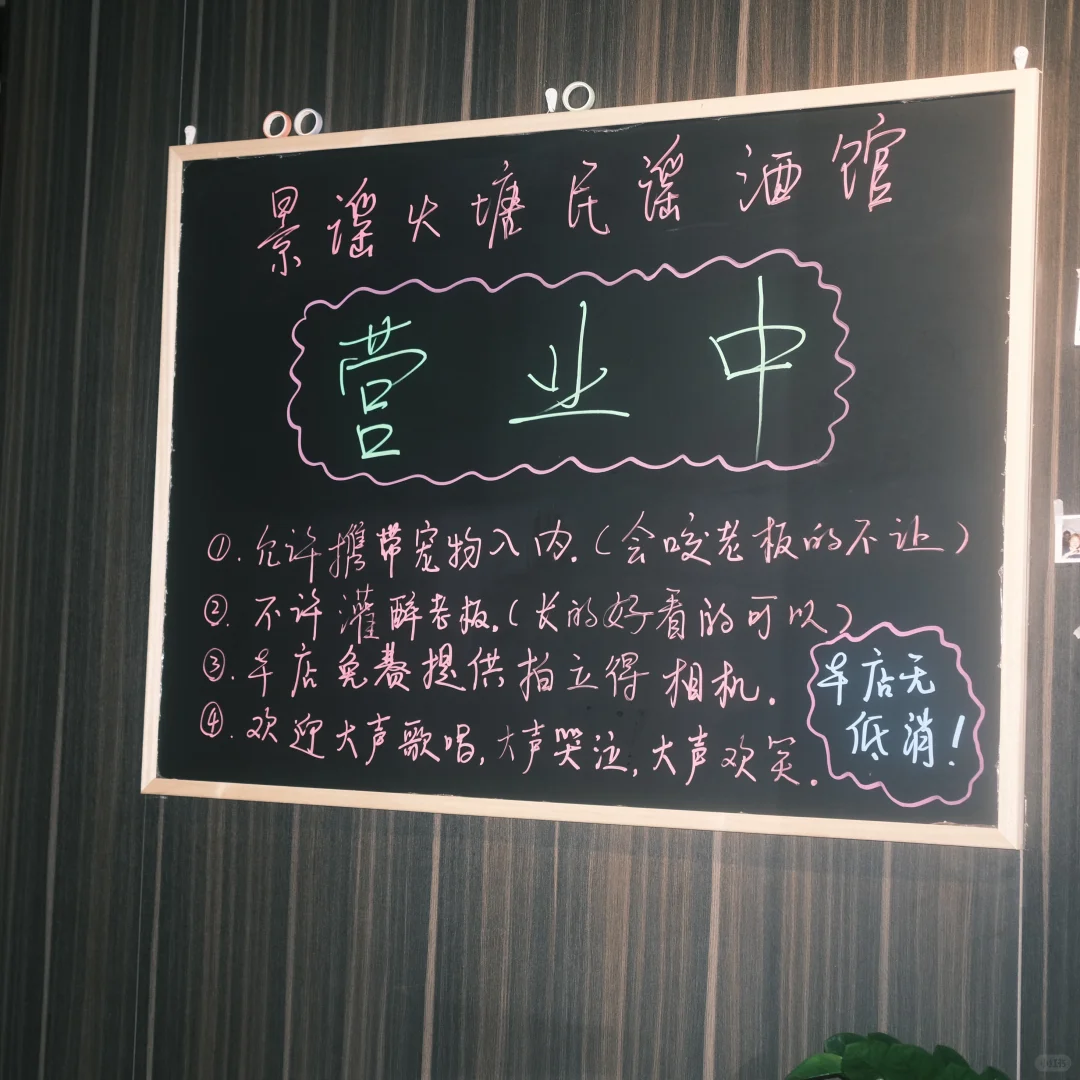 景谣火塘民谣酒馆
营业中
①.允许携带宠物入内.(会咬老板的不让)
②.不许灌醉老板.(长的好看的可以)
③.本店免费提供拍立得相机.
④.欢迎大声歌唱,大声哭泣,大声欢笑.
本店无
低消!